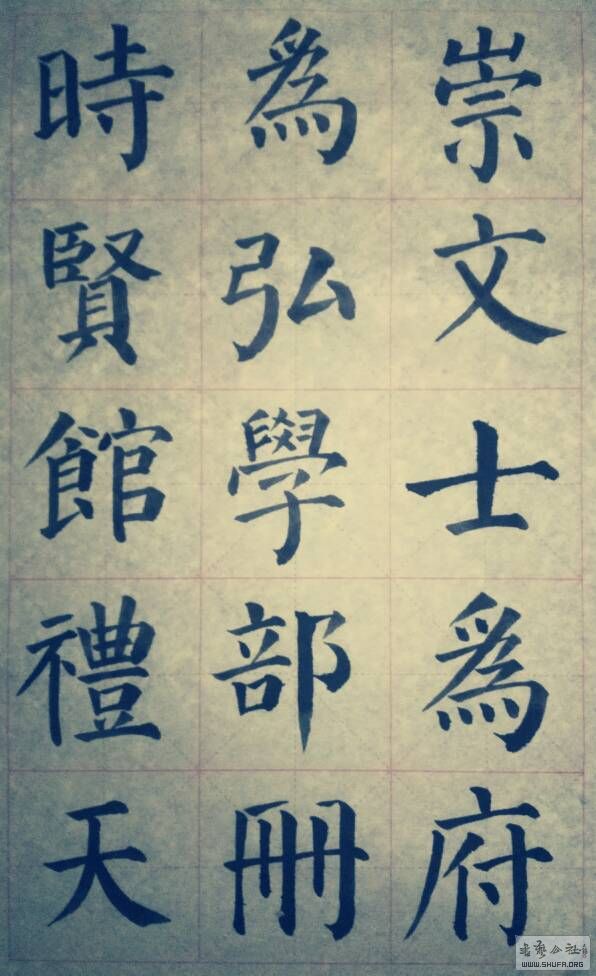 崇文士爲府
爲弘學部冊
時賢館禮天
WWW.SHUFA.ORG